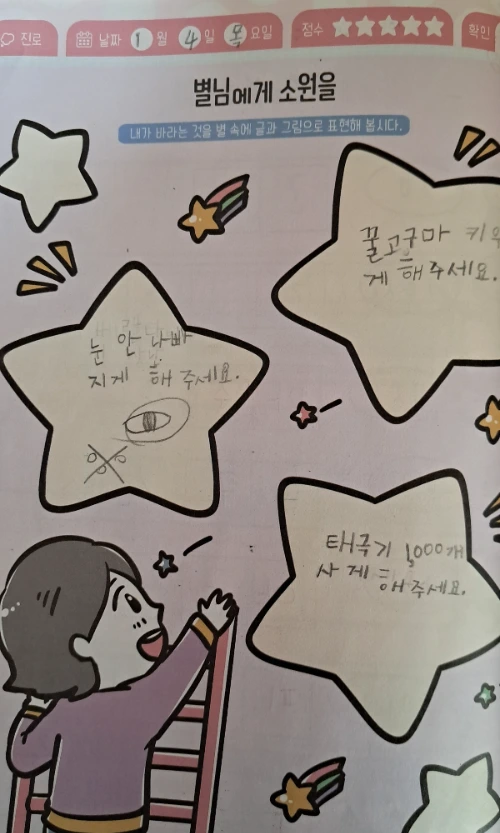 진로
날짜 1 월 4 일 목 요일
점수
확인
별님에게 소원을
내가 바라는 것을 별 속에 글과 그림으로 표현해 봅시다.
꿀고구마 키우
게 해주세요.
눈 안 나빠
지게 해 주세요.
태극기 1,000개
사 게 해주세요.